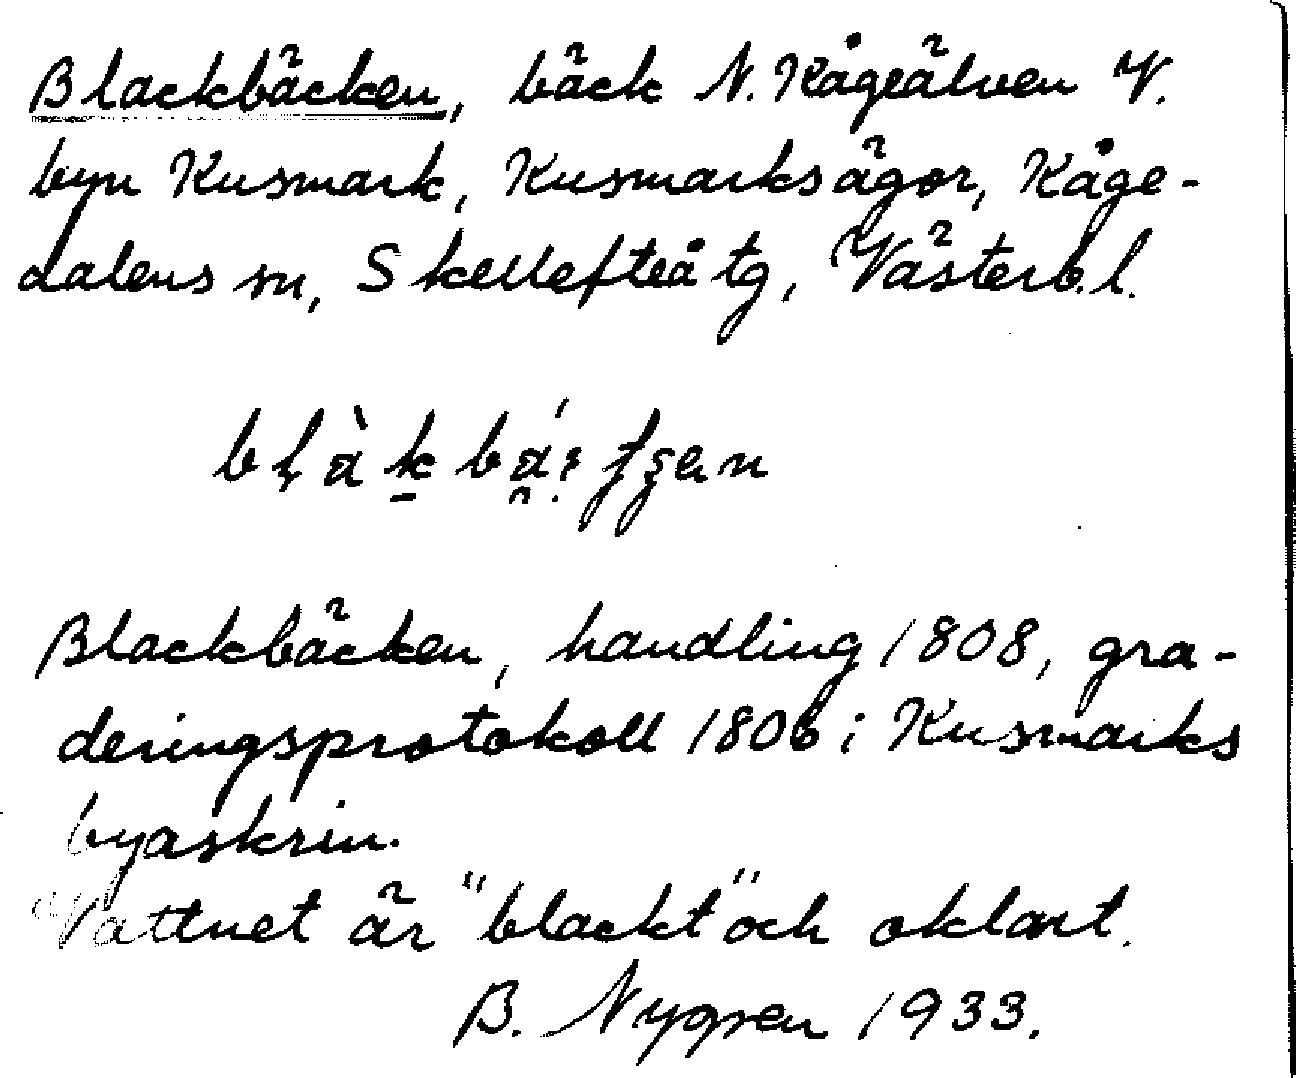 Blackbäcken, bäck N. Kågeälven V.
byn Kusmark, Kusmarksågor, Kåge-
dalens sn, Skellefteå tg, Västerb.l.
Blackbäcken, handling 1808, gra-
deringsprotokoll 1806 i Kusmarks
byaskrin.
Vattnet är "blackt" och oklart.
B. Nygren 1933.